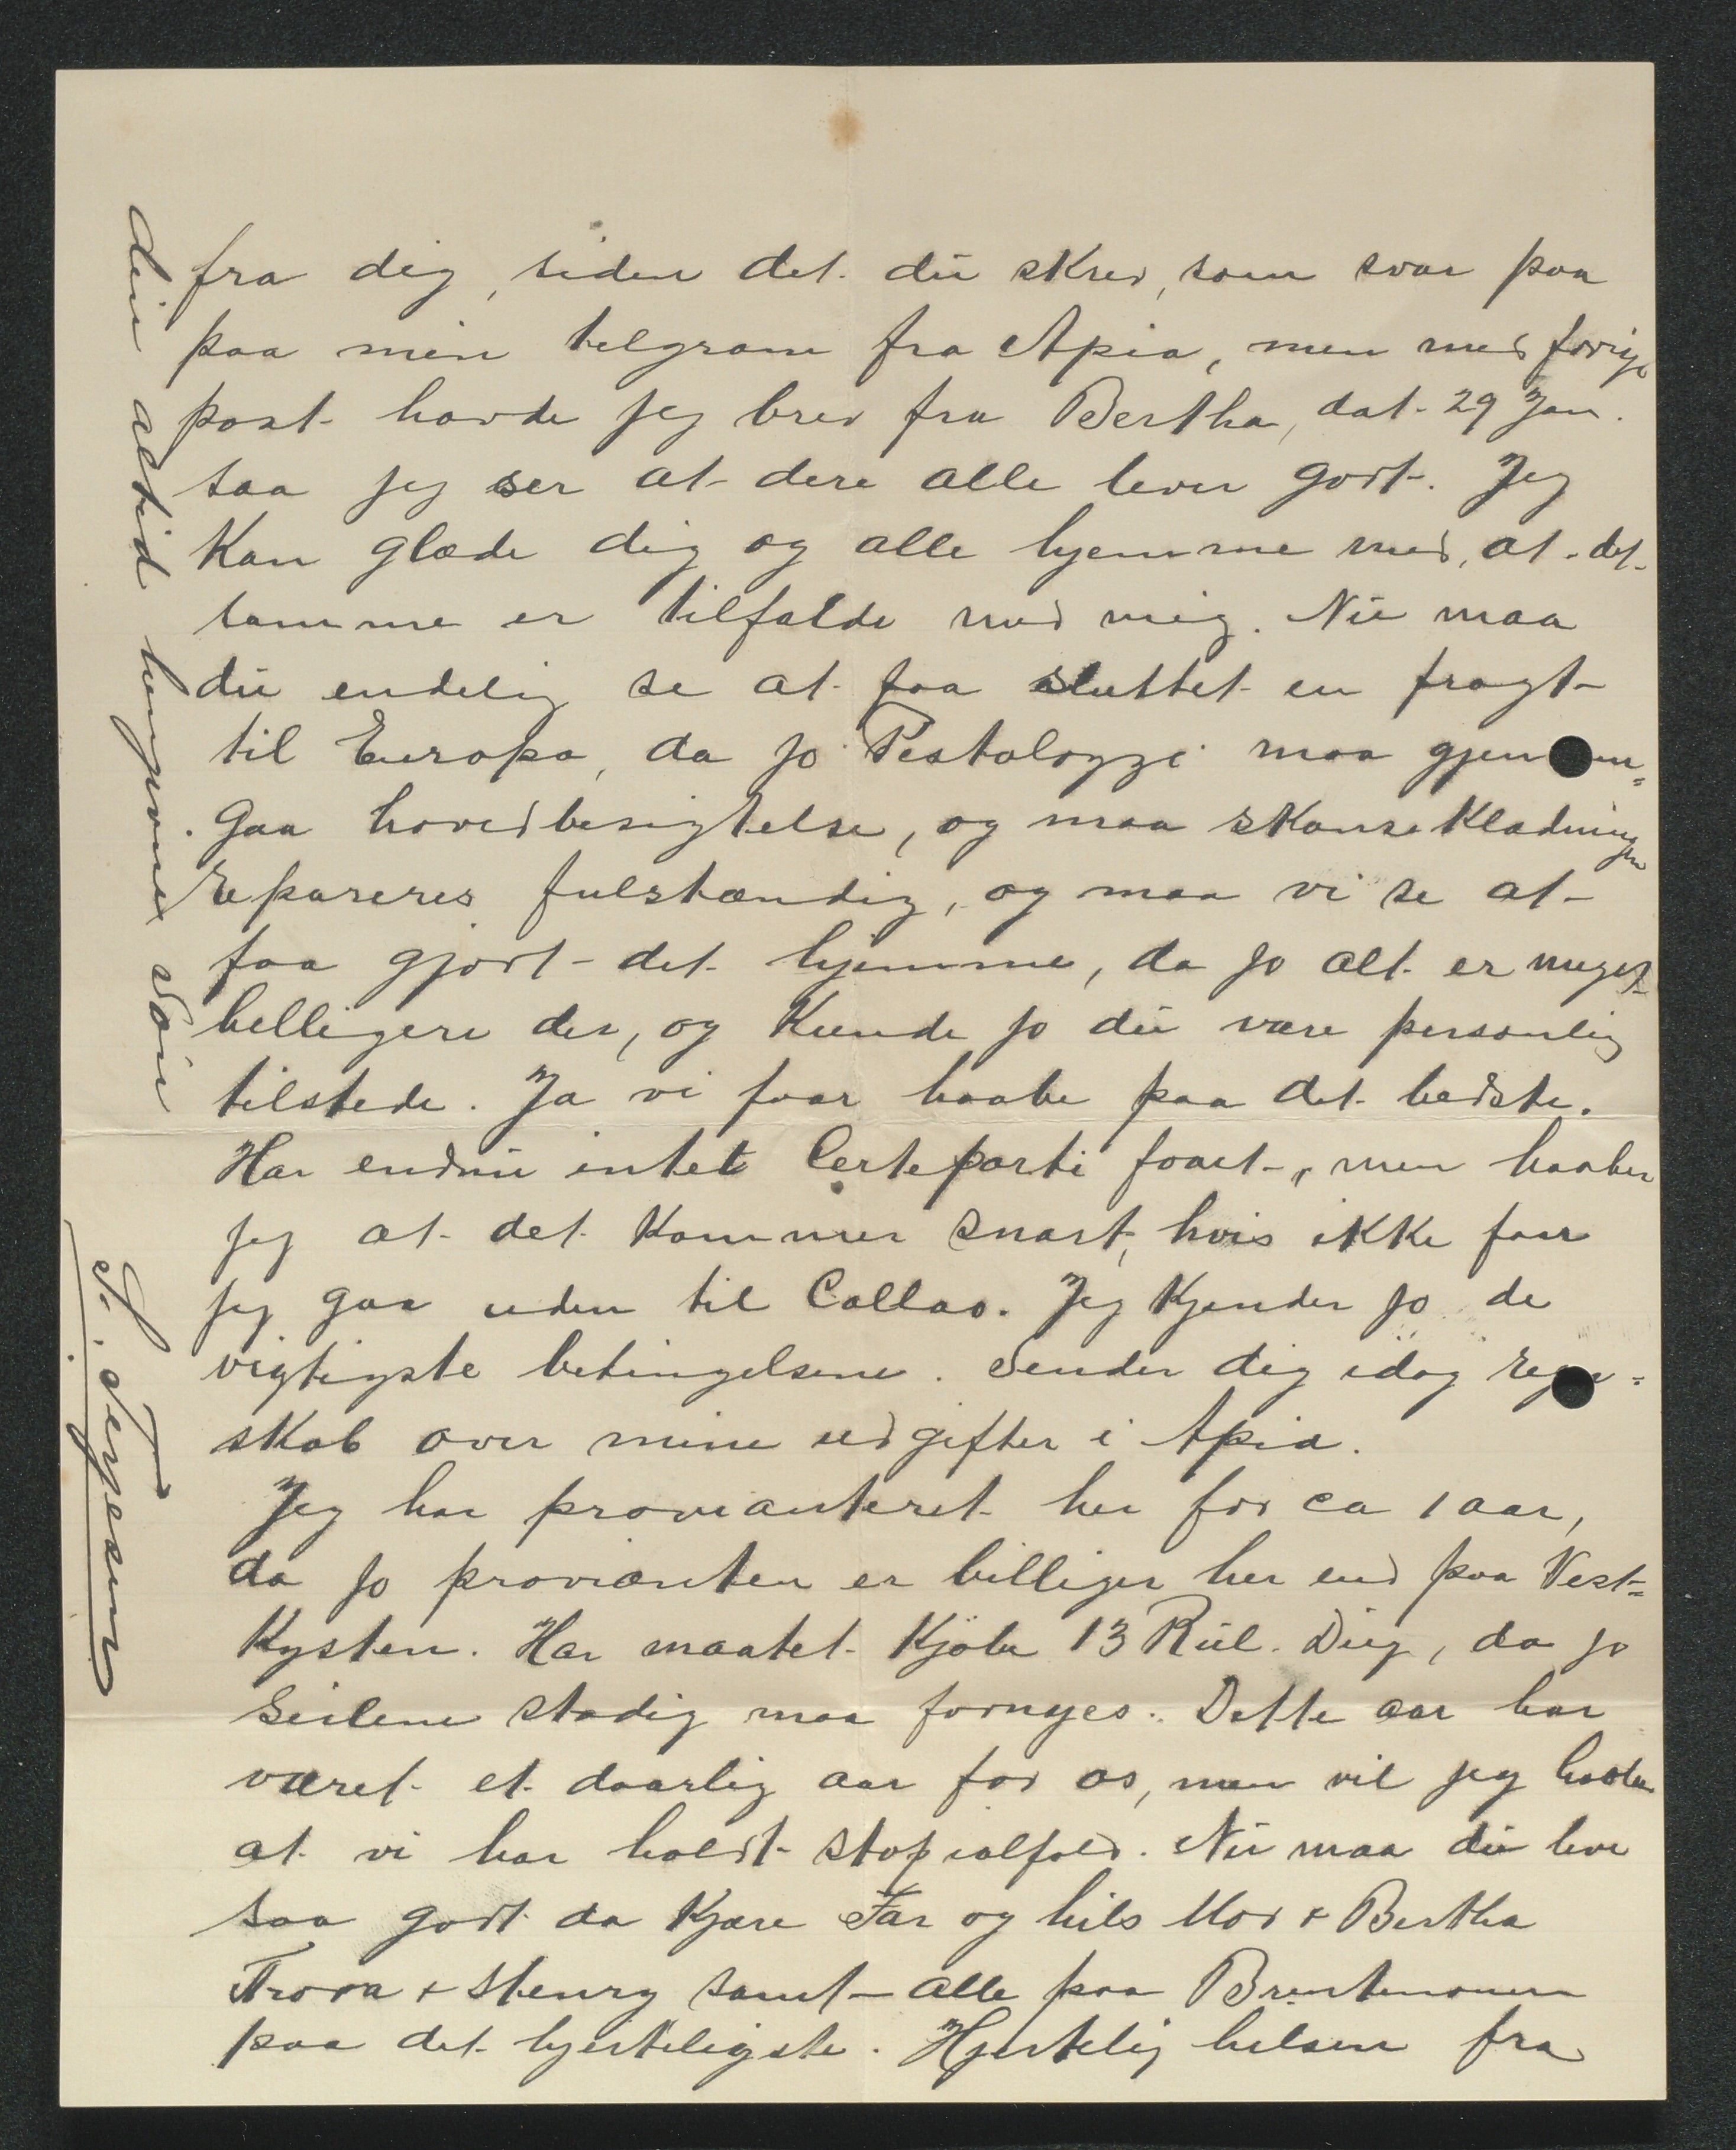 fra dig, siden det du skrev, som svar paa
paa min telgram fra Apia, men med forige
post havde jeg brev fra Bertha, dat. 29 Jan.
saa jeg ser at dere alle lever godt. Jeg
kan glæde dig og alle hjemme med, at det
samme er tilfælde med mig. Nu maa
du endelig se at faa sluttet en fragt
til Europa, da jo Pestalozzi maa gjennem=
gaa hovedbesigtelse, og maa skanseklædningen
repareres fulstændig, og maa vi se at
faa gjort det hjemme, da jo alt er meget
billigere der, og kunde jo du være personlig
tilstede. Ja vi faar haabe paa det bedste.
Har endnu intet Certeparti faaet, men haaber
jeg at det kommer snart, hvis ikke faar
jeg gaa uden til Callao. Jeg kjender jo de
vigtigste betingelserne. Sender dig idag regn=
skab over mine udgifter i Apia.
Jeg har provianteret her for ca 1 aar,
da jo provianten er billiger her end paa Vest=
kysten. Har maatet kjøbe 13 Rul. Dug, da jo
seilene stadig maa fornyes. Dette aar har
været et daarlig aar for os, men vil jeg haabe
at vi har holdt stop ialfald. Nu maa du leve
saa godt da kjære Far og hils Mor & Bertha
& Henry samt alle paa
paa det hjerteligste. Hjertelig hilsen fra
din altid hengivne Søn
S. Terjesen